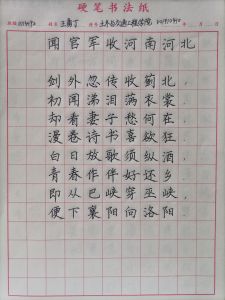 硬笔书法纸
闻官军收河南河北
剑外忽传收蓟北,
初闻涕泪满衣裳.
却看妻子愁何在,
漫卷诗书喜欲狂.
白日放歌须纵酒,
青春作伴好还乡.
即从巴峡穿巫峡,
便下襄阳向洛阳.